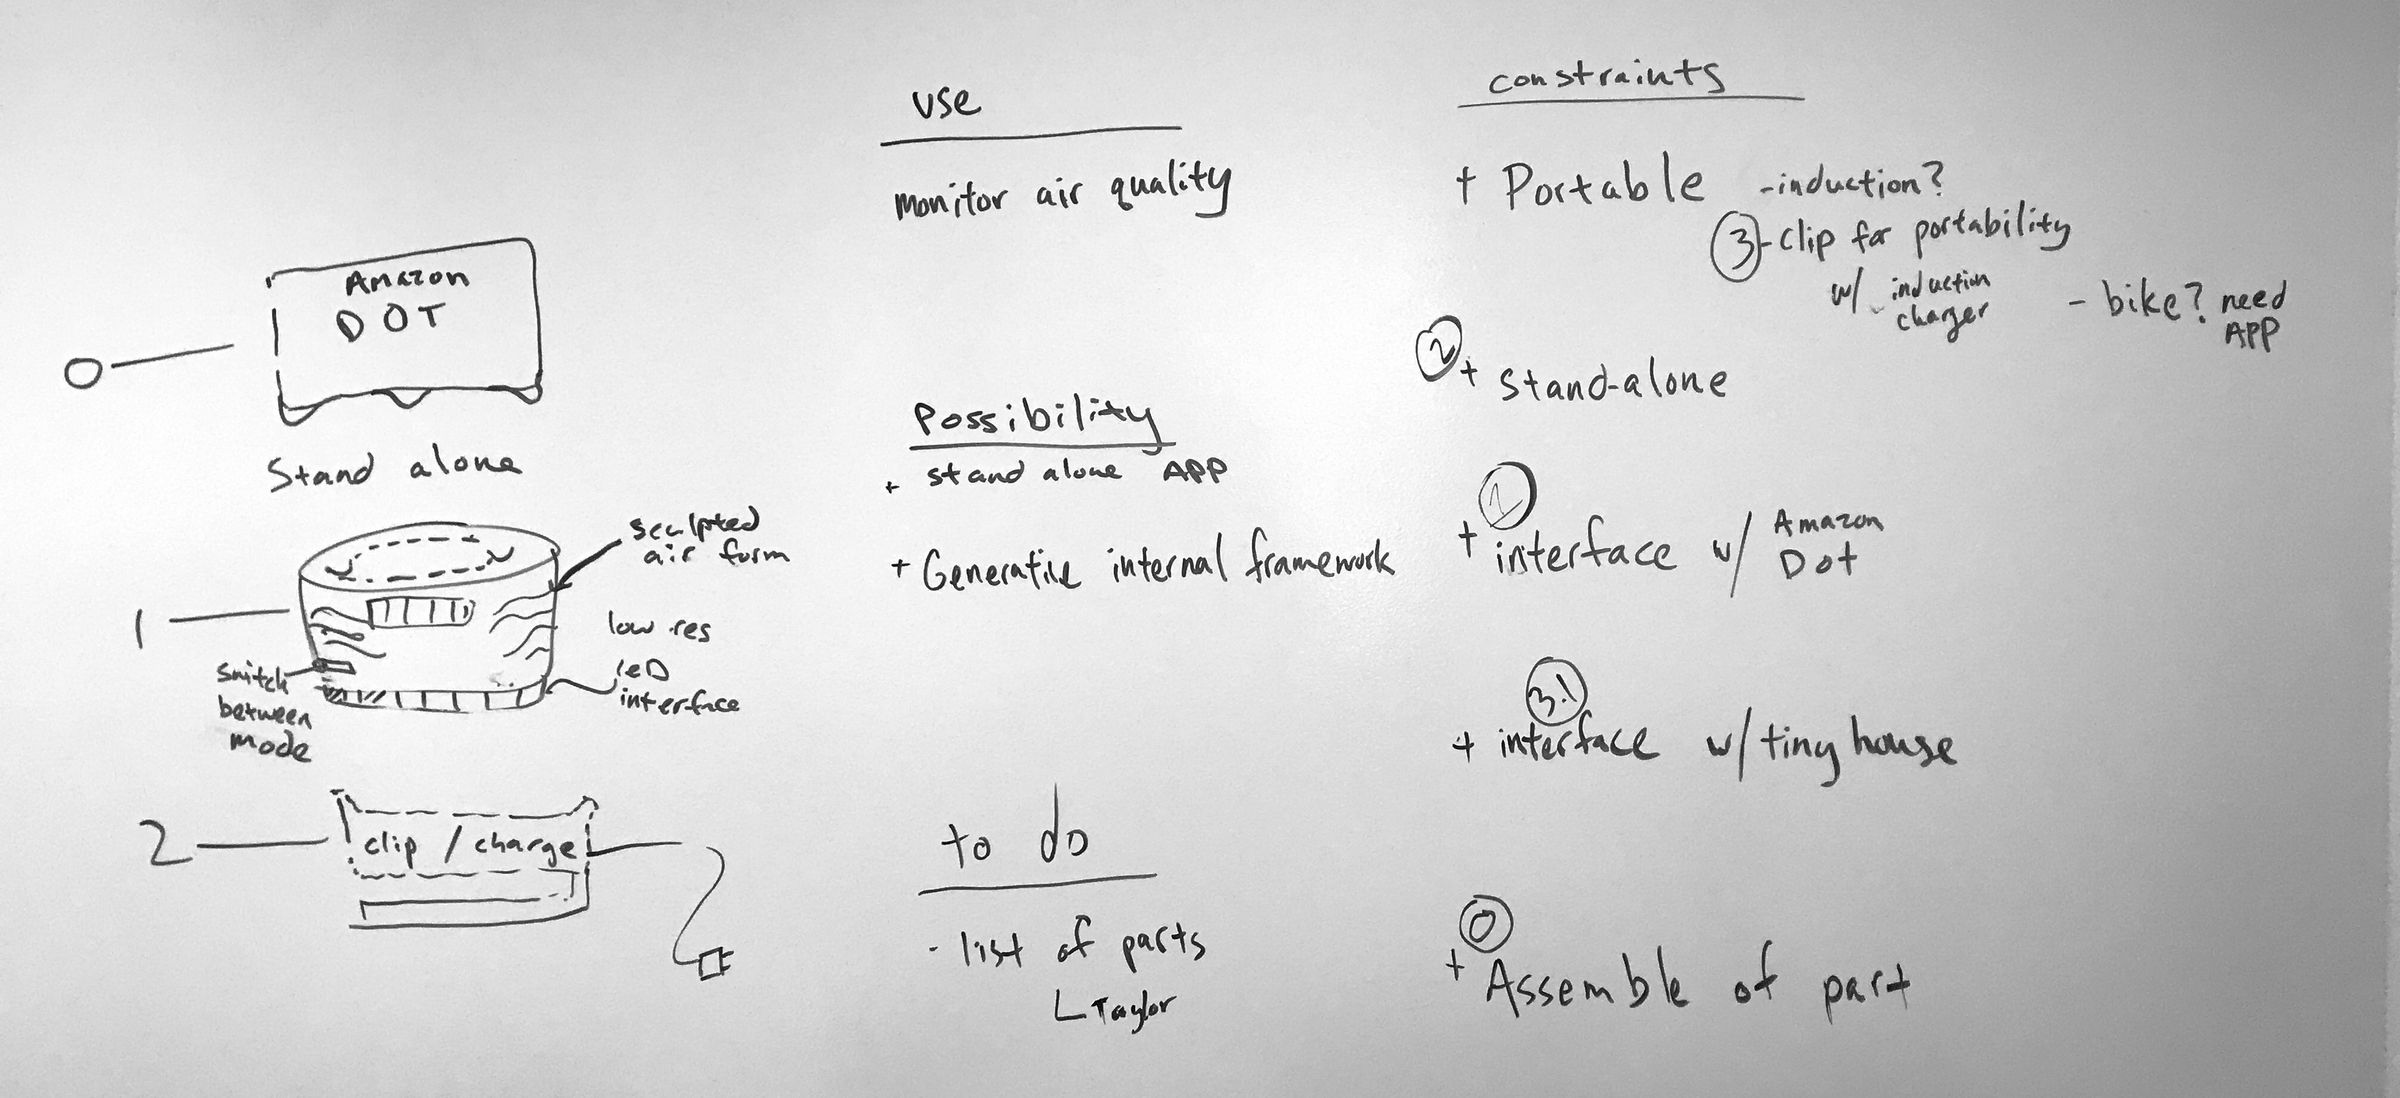 Amazon
DOT
0
Stand alone
sculpted
air form
1
low res
LED
interface
switch
between
mode
2
clip / charge
use
monitor air quality
Possibility
+ stand alone APP
+ Generative internal framework
to do
- list of parts
Taylor
constraints
+ Portable - induction?
3 - clip for portability
w/ induction
charger
- bike? need
APP
2
+ stand-alone
1
+ interface w/ Amazon
Dot
3.1
+ interface w/ tiny house
0
+ Assemble of part